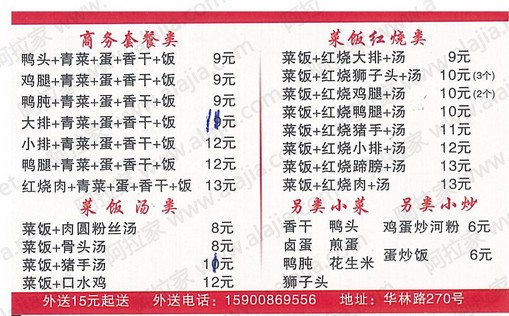 商务套餐类
鸭头+青菜+蛋+香干+饭 9元
鸡腿+青菜+蛋+香干+饭 9元
鸭肫+青菜+蛋+香干+饭 9元
大排+青菜+蛋+香干+饭 元
小排+青菜+蛋+香干+饭 12元
鸭腿+青菜+蛋+香干+饭 12元
红烧肉+青菜+蛋+香干+饭 13元
菜饭汤类
菜饭+肉圆粉丝汤 8元
菜饭+骨头汤 8元
菜饭+猪手汤 10元
菜饭+口水鸡 12元
菜饭红烧类
菜饭+红烧大排+汤 9元
菜饭+红烧狮子头+汤 10元(3个)
菜饭+红烧鸡腿+汤 10元(2个)
菜饭+红烧鸭腿+汤 10元
菜饭+红烧猪手+汤 11元
菜饭+红烧小排+汤 12元
菜饭+红烧蹄膀+汤 13元
菜饭+红烧肉+汤 13元
另类小菜 另类小炒
香干 鸭头 鸡蛋炒河粉 6元
卤蛋 煎蛋
鸭肫 花生米 蛋炒饭 6元
狮子头
外送15元起送 外送电话：15900869556 地址：华林路270号
阿拉家 www.alajia.net